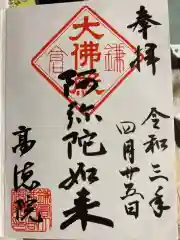 奉拝
令和三年
四月廿五日
大佛殿
鎌倉
阿弥陀如来
高徳院